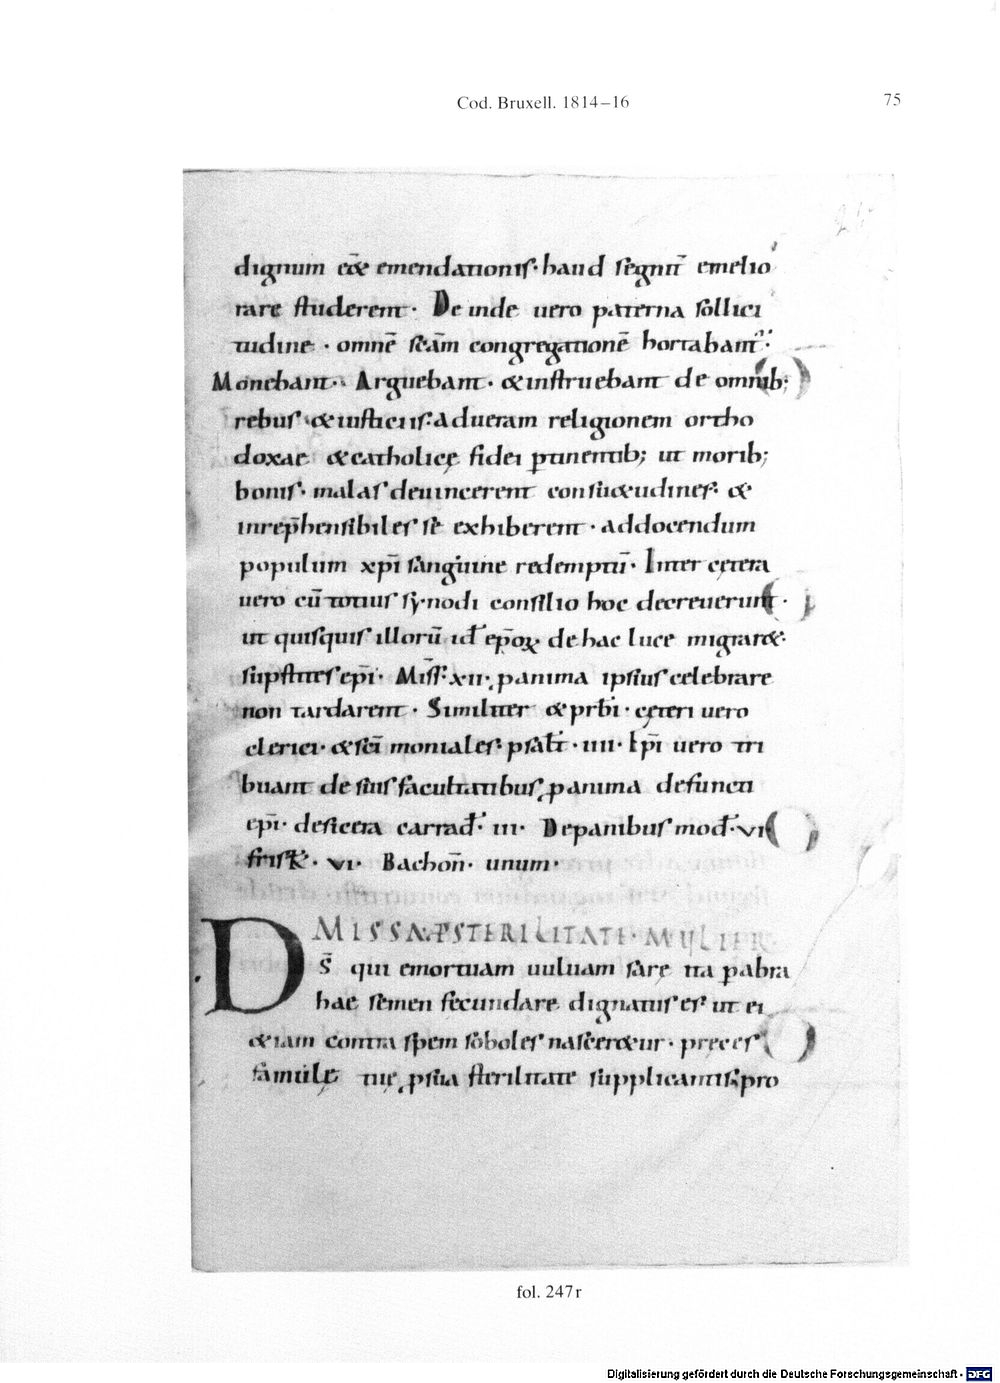 Cod. Bruxell. 1814–16
75
dignum eēt emendationis· haud segnit̄ emelio
rare studerent· De inde uero paterna sollici
tudine · omnē scām congregationē hortabant̄·
Monebant· Arguebant· &instruebant de omnib;
rebus &iusticiis· adueram religionem ortho
doxae &catholicę fidei ꝑtinentib; ut morib;
bonis· malas deuincerent consu&udines· &
inrep̄hensibiles sē exhiberent· addocendum
populum xp̄i sanguine redemptū· Inter cętera
uero cū totius synodi consilio hoc decreuerunt·
ut quisquis illorū id ep̄oꝝ de hac luce migrar&·
supstites ep̄i· Miss̄· xii· ꝓanima ipsius celebrare
non tardarent· Similiter &prb̄i· cęteri uero
clerici· &scī moniales· psalt̄· iiii· Ep̄i uero tri
buant de suis facultatibus ꝓanima defuncti
ep̄i· desicera carrad̄· iii· Depanibus mod̄· vi
frisk̄· vi· Bachon̄· unum·
MISSA ꝓ STERILITATE· MULIER·
Ds̄ qui emortuam uuluam sarę ita ꝑabra
hae semen fecundare dignatus es· ut ei
&iam contra spem soboles nascer&ur· pręces
famulę tuę ꝓsua sterilitate supplicantis pro
fol. 247r
Digitalisierung gefördert durch die Deutsche Forschungsgemeinschaft · DFG